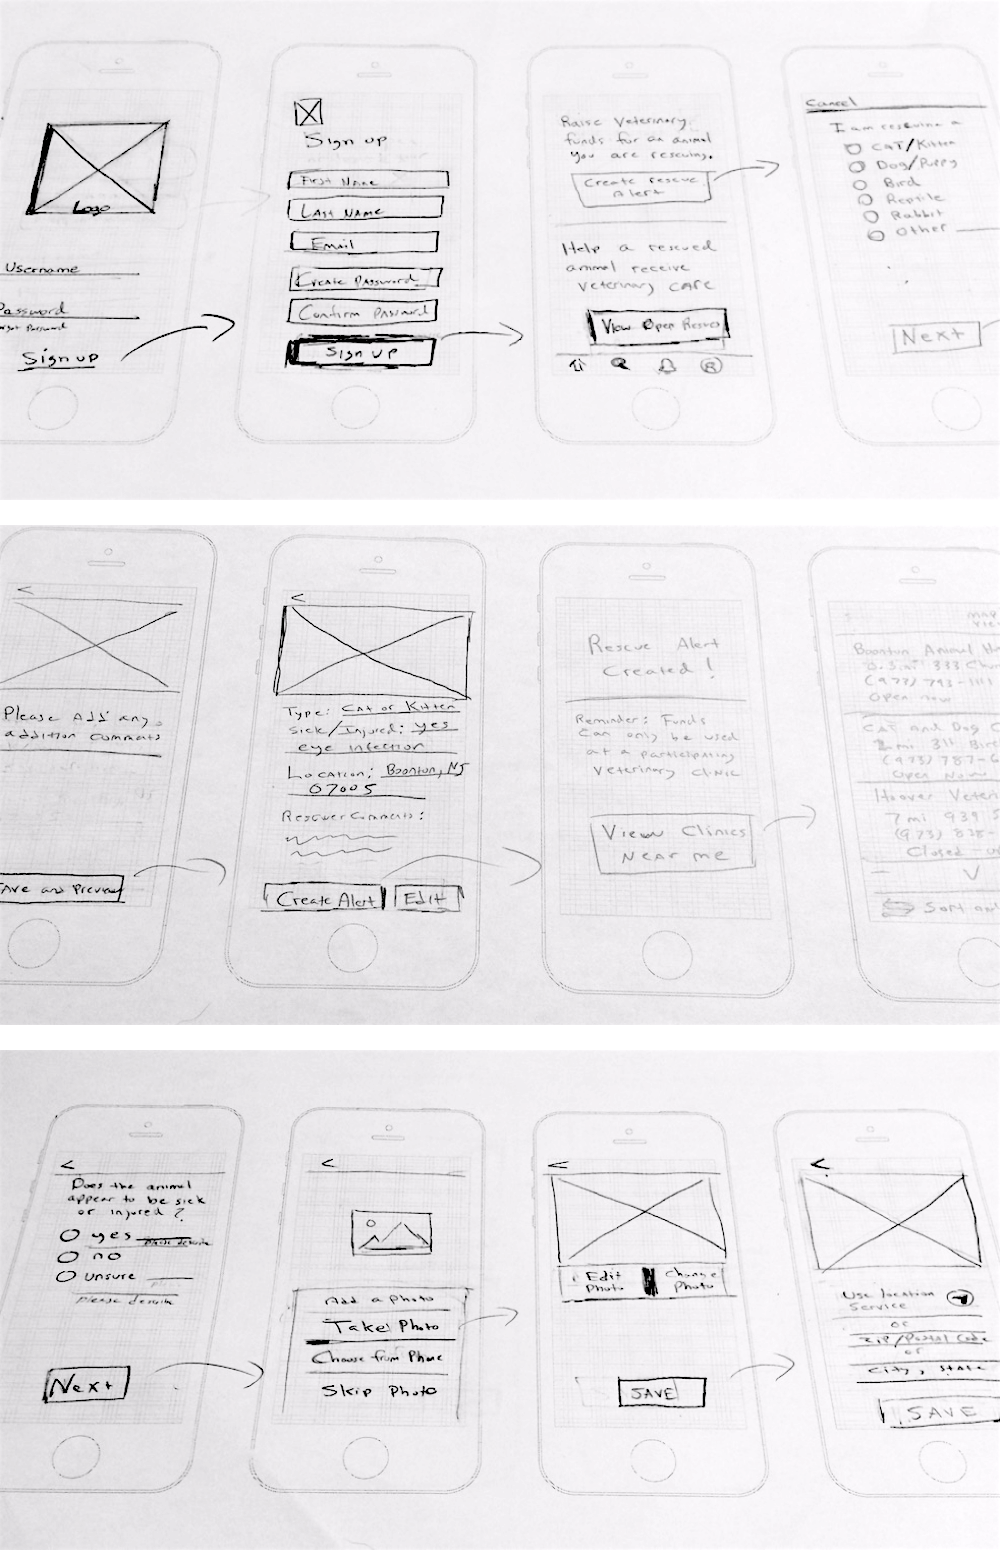 Logo
Username
Password
Forgot Password
Sign up
Sign up
First Name
Last Name
Email
Create Password
Confirm Password
Sign up
Raise Veterinary
funds for an animal
you are rescuing.
Create rescue
Alert
Help a rescued
animal receive
veterinary care
View Open Rescues
Cancel
I am rescuing a
CAT/Kitten
Dog/Puppy
Bird
Reptile
Rabbit
Other
Next
<
Please Add any
addition comments
Save and Preview
<
Type: Cat or Kitten
Sick/Injured: yes
eye infection
Location: Boonton, NJ
07005
Rescuer Comments:
Create Alert
Edit
Rescue Alert
Created!
Reminder: Funds
can only be used
at a participating
veterinary clinic
View Clinics
Near me
Map
View
Boonton Animal
333
(977) 793-1111
Open now
CAT and Dog
2 mi 311
(973) 787-6
Open Now
Hoover Veter
7 mi 939 S
(973) 838-
Closed
Sort and
<
Does the animal
appear to be sick
or injured?
yes please describe
no
unsure
please describe
Next
<
Add a photo
Take Photo
Choose from Phone
Skip Photo
<
Edit
Photo
Change
Photo
SAVE
<
Use location
Service
or
Zip/Postal Code
or
City, State
SAVE